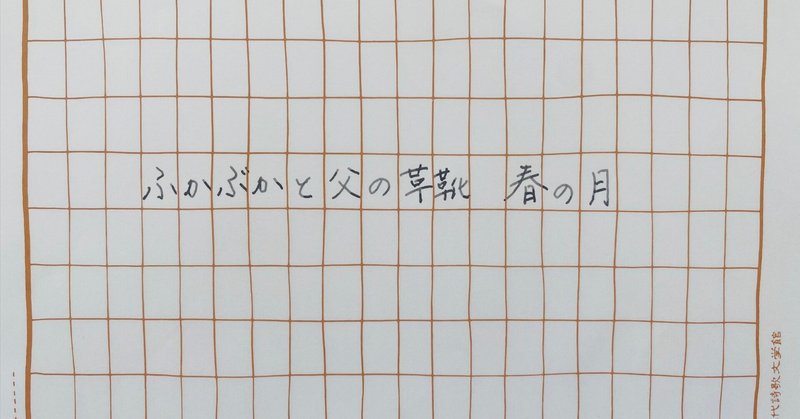 ふかぶかと父の革靴　春の月
代詩歌文学館